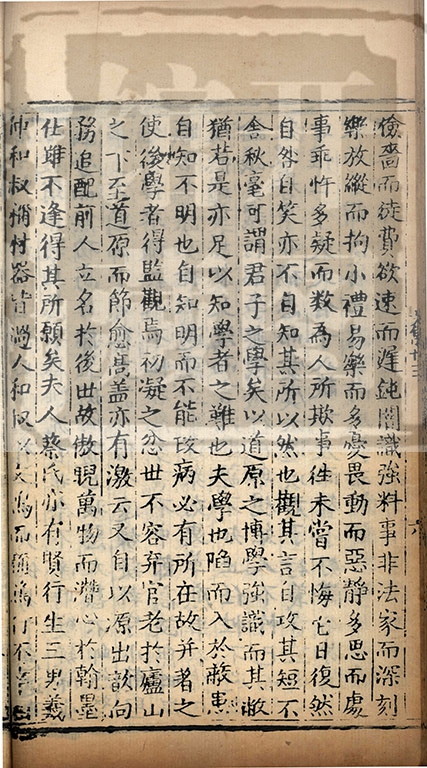 儉嗇而徒費欲速而遲鈍闇識強料事非法家而深刻
樂放縱而拘小禮易樂而多憂畏動而惡靜多思而處
事乖忤多疑而數為人所欺事徃未嘗不悔它日復然
自咎自笑亦不自知其所以然也觀其言自攻其短不
舍秋毫可謂君子之學矣以道原之博學強識而其敝
猶若是亦足以知學者之難也夫學也陷而入於敝患
自知不明也自知明而不能改病必有所在故并著之
使後學者得監觀焉初凝之忿世不容弃官老於廬山
之下至道原而節愈髙盖亦有激云又自以源出歆向
務追配前人立名於後世故傲睨萬物而潛心於翰墨
仕雖不逢得其所願矣夫人蔡氏亦有賢行生三男羲
仲和叔稱材器皆過人和叔以文鳴而
六